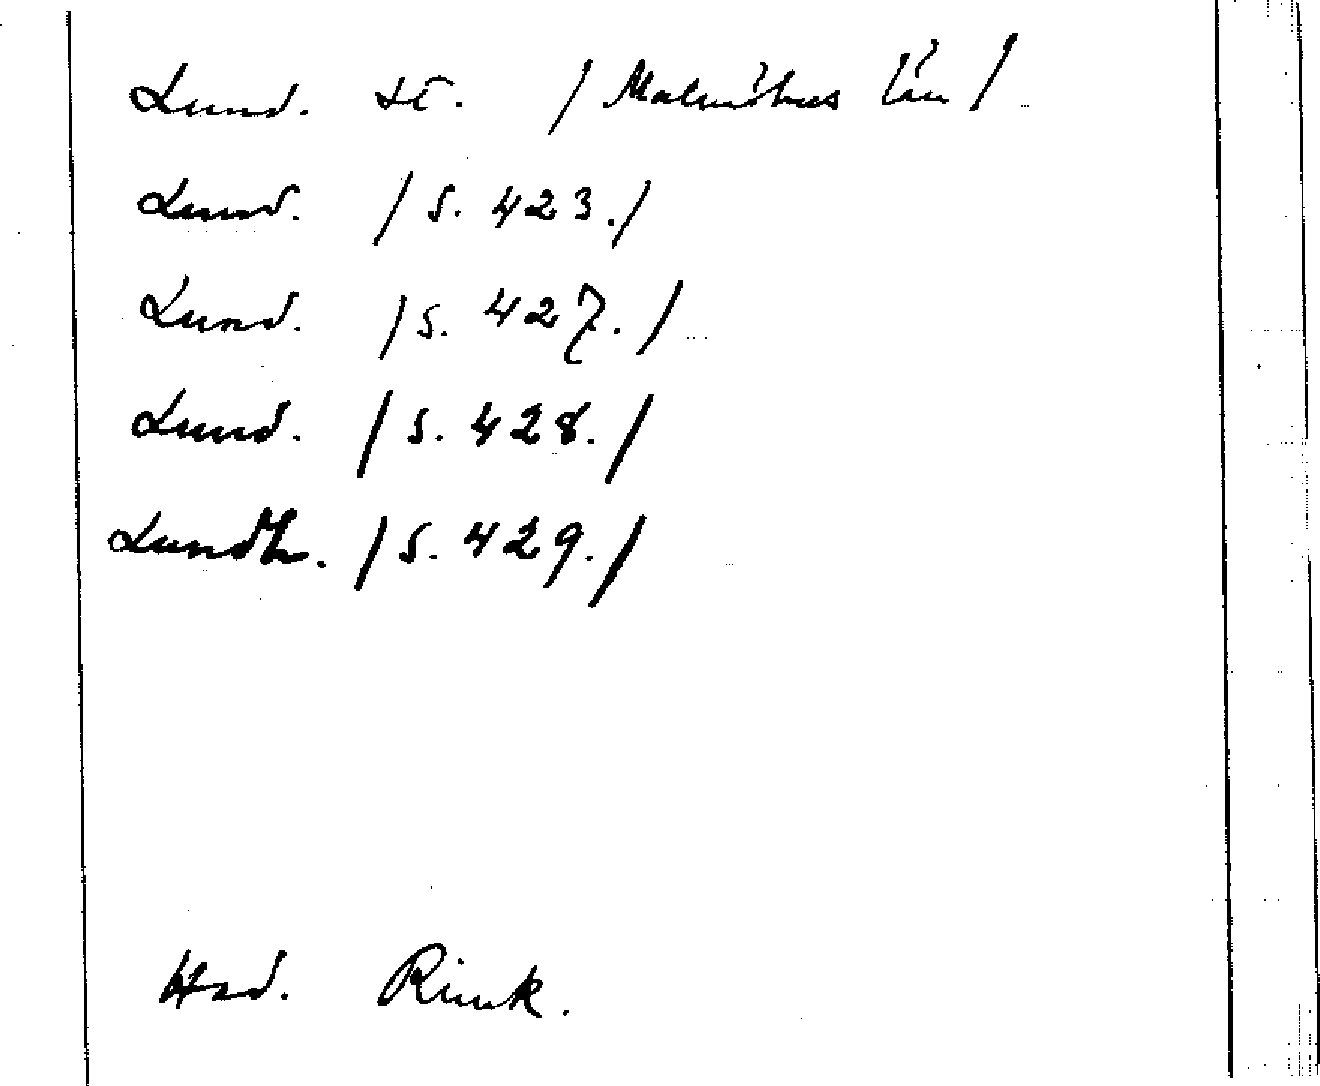 Lund. st. / Malmöhus län /
Lund. / S. 423. /
Lund. / S. 427. /
Lund. / S. 428. /
Lundh. / S. 429. /
Rink.